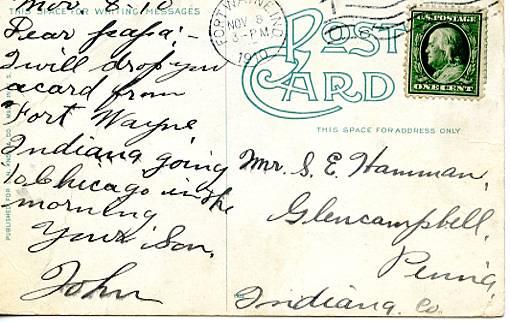 Nov. 8-10
THIS SPACE FOR WRITING MESSAGES
Dear papa:-
I will drop you
a card from
Fort Wayne
Indiana going
to Chicago in the
morning
Your Son,
John
PUBLISHED FOR
FORT WAYNE, IND.
NOV 8
3-PM
1910
POST
CARD
U.S. POSTAGE
ONE CENT
THIS SPACE FOR ADDRESS ONLY
Mr. S. E. Hamman,
Glencampbell,
Penna,
Indiana. Co.